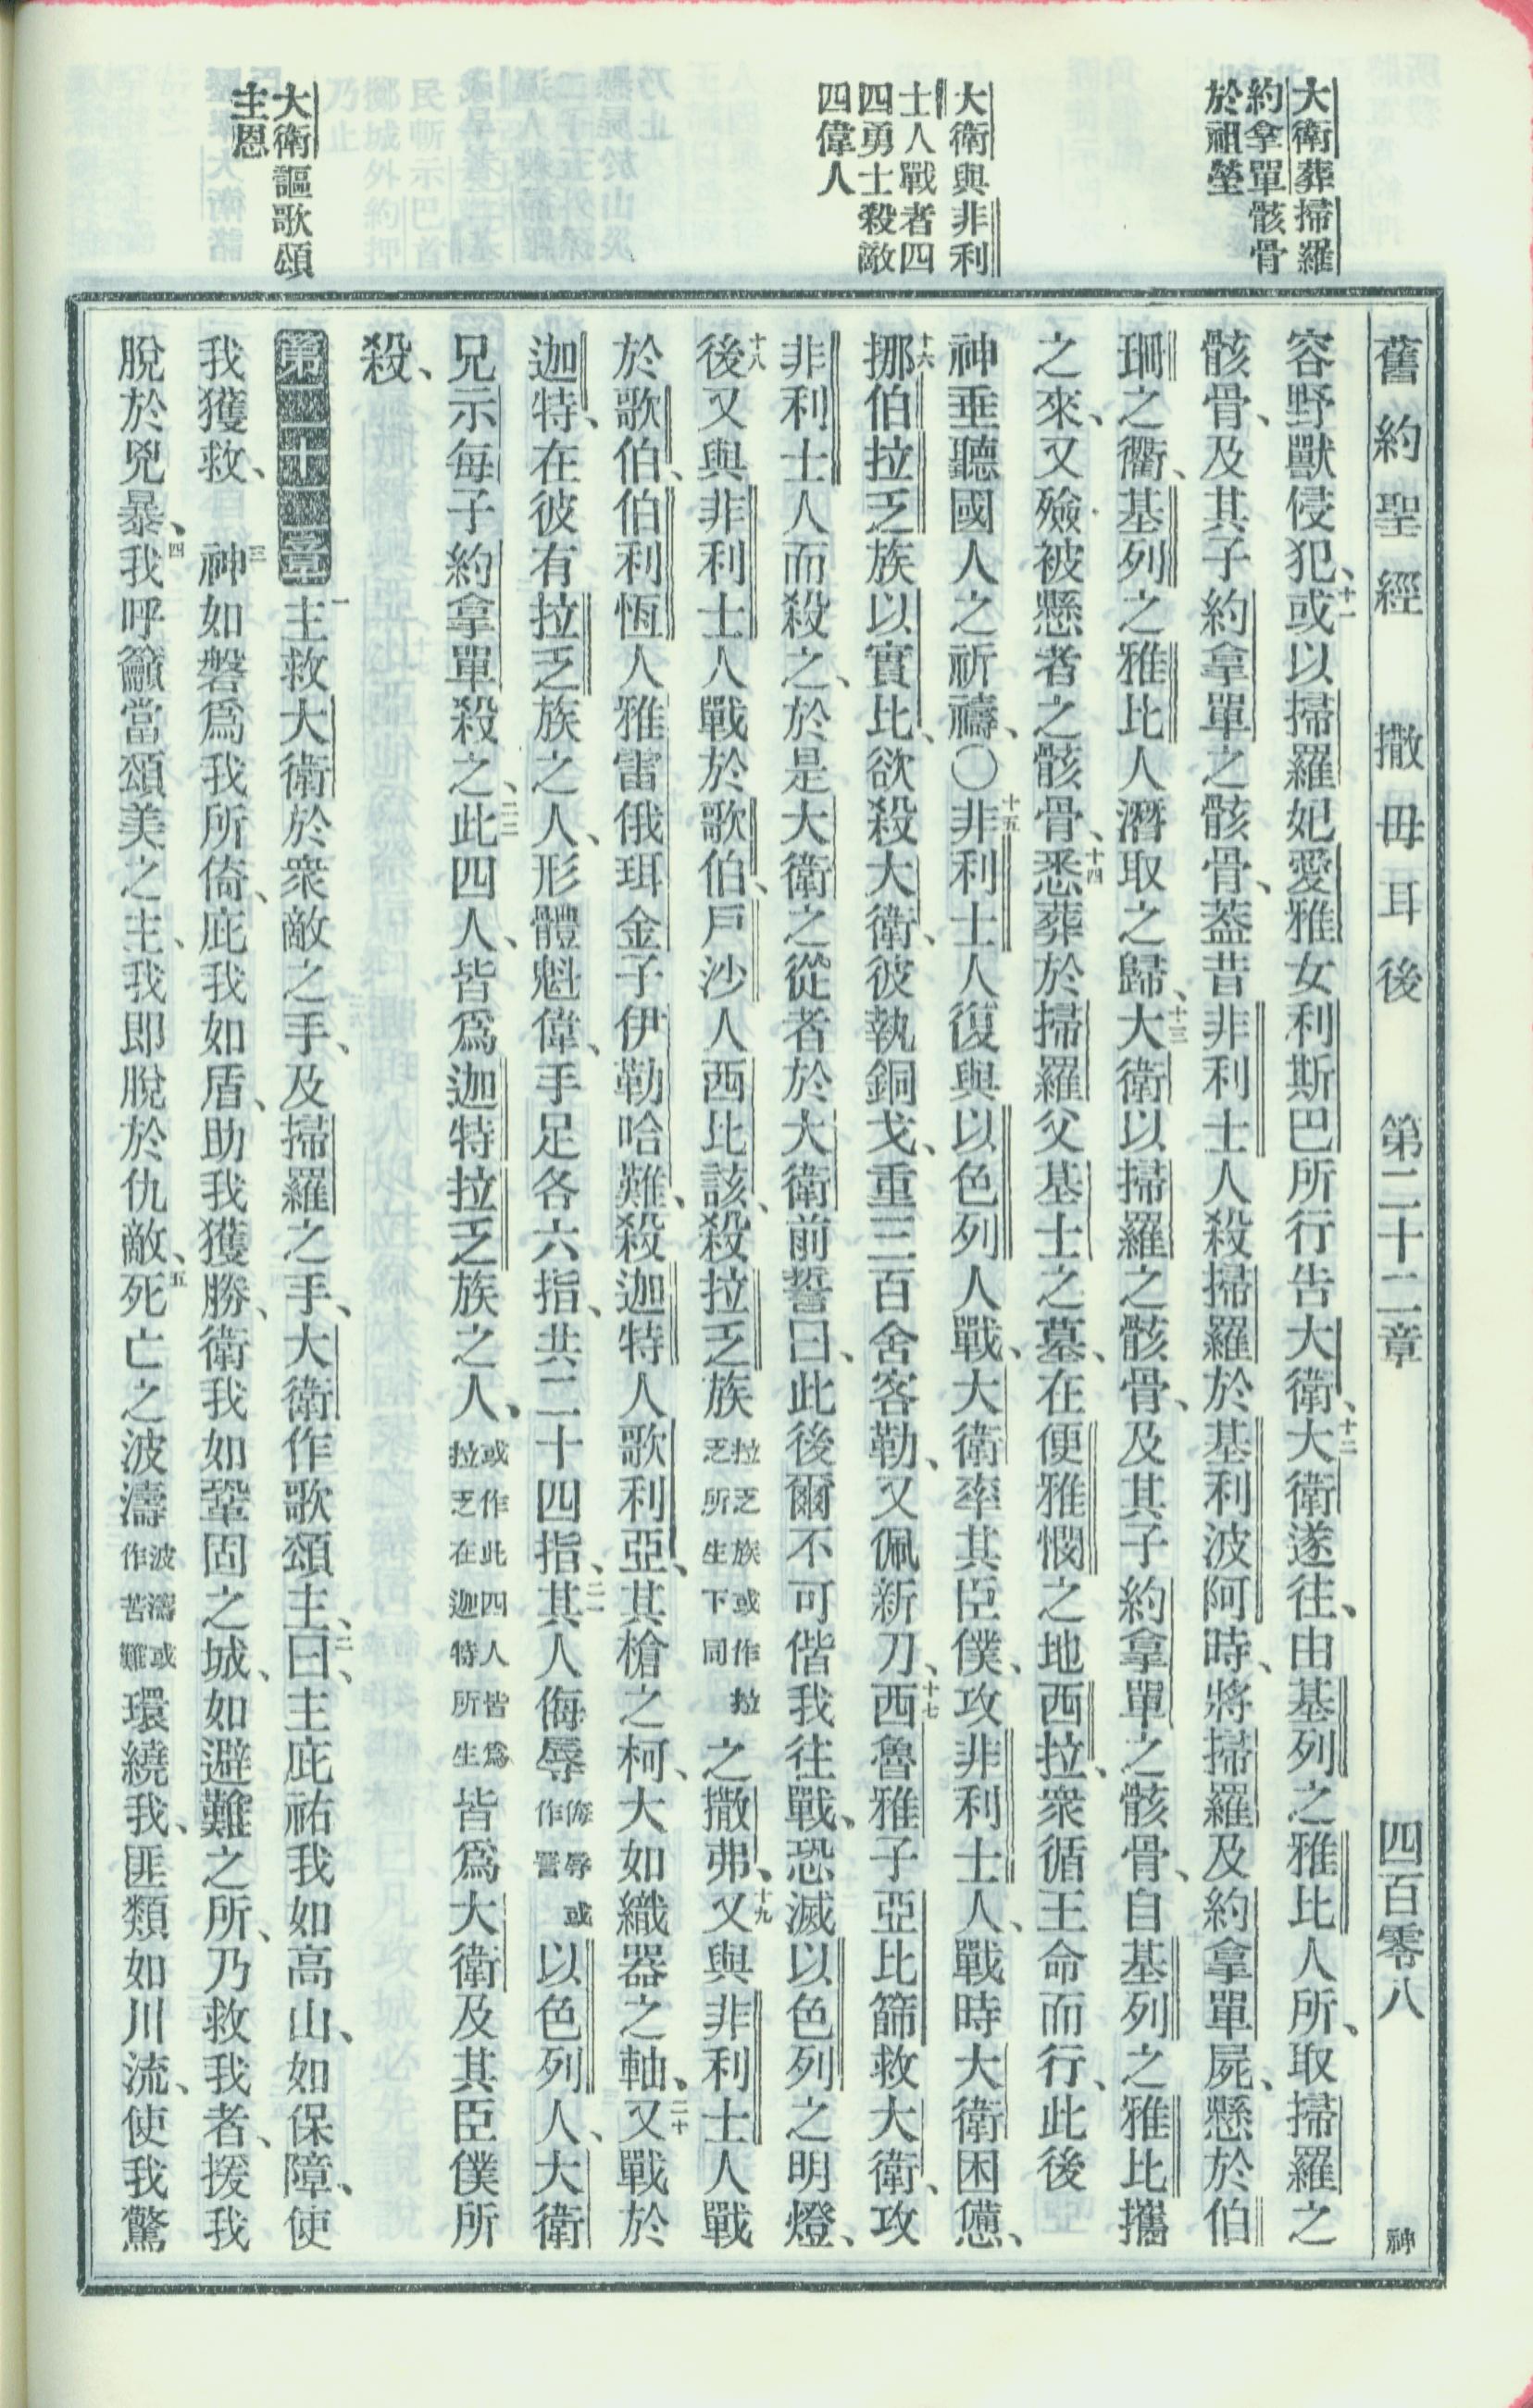 舊約聖經　撒毋耳後　第二十二章　四百零八　神
大衛葬掃羅
約拿單骸骨
於祖塋
大衛與非利
士人戰者四
四勇士殺敵
四偉人
大衛謳歌頌
主恩
容野獸侵犯、十一或以掃羅妃愛雅女利斯巴所行告大衛、十二大衛遂往、由基列之雅比人所、取掃羅之
骸骨、及其子約拿單之骸骨、蓋昔非利士人殺掃羅於基利波阿時、將掃羅及約拿單屍、懸於伯
珊之衢、基列之雅比人潛取之歸、十三大衛以掃羅之骸骨、及其子約拿單之骸骨、自基列之雅比攜
之來、又殮被懸者之骸骨、十四悉葬於掃羅父基士之墓、在便雅憫之地西拉、衆循王命而行、此後
神垂聽國人之祈禱、〇十五非利士人復與以色列人戰、大衛率其臣僕、攻非利士人、戰時大衛困憊、
十六挪伯拉乏族以實比、欲殺大衛、彼執銅戈、重三百舍客勒、又佩新刀、十七西魯雅子亞比篩救大衛、攻
非利士人而殺之、於是大衛之從者於大衛前誓曰、此後爾不可偕我往戰、恐滅以色列之明燈、
十八後又與非利士人戰於歌伯、戶沙人西比該、殺拉乏族拉乏族或作拉乏所生下同之撒弗、十九又與非利士人戰
於歌伯、伯利恆人雅雷俄珥金子伊勒哈難、殺迦特人歌利亞、其槍之柯、大如織器之軸、二十又戰於
迦特、在彼有拉乏族之人、形體魁偉、手足各六指、共二十四指、二一其人侮辱侮辱或作詈以色列人、大衛
兄示每子約拿單殺之、二二此四人、皆爲迦特拉乏族之人、或作此四人皆爲拉乏在迦特所生皆爲大衛及其臣僕所
殺、
第二十二章　一主救大衛於衆敵之手、及掃羅之手、大衛作歌頌主、二曰、主庇祐我如高山、如保障、使
我獲救、三神如磐爲我所倚、庇我如盾、助我獲勝、衛我如鞏固之城、如避難之所、乃救我者、援我
脫於兇暴、四我呼籲當頌美之主、我即脫於仇敵、五死亡之波濤波濤或作苦難環繞我、匪類如川流、使我驚